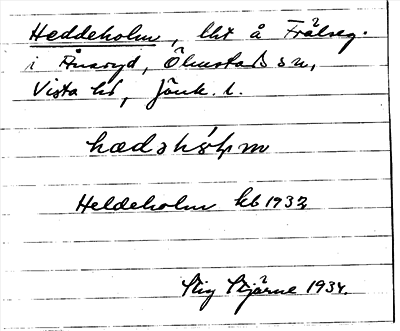 Heddeholm, lht å Frälseg.
i Ånaryd, Ölmstads sn,
Vista hd, Jönk. l.
Heldeholm kb 1933
Stig Stjärne 1934.